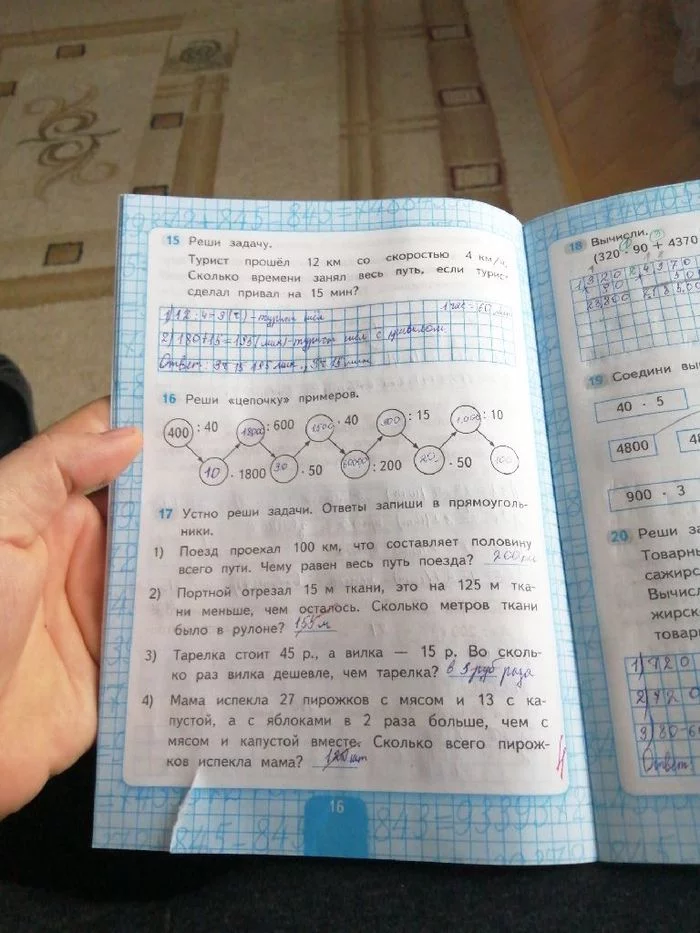 15 Реши задачу.
Турист прошёл 12 км со скоростью 4 км/ч.
Сколько времени занял весь путь, если турист
сделал привал на 15 мин?
1) 12 : 4 = 3 (ч) -
1 час = 60 мин
2) 180 + 15 = 195 (мин) -
Ответ:
16 Реши «цепочку» примеров.
400 : 40 1800 : 600 1500 · 40 300 : 15 1000 : 10
10 · 1800 30 · 50 60000 : 200 20 · 50 100
17 Устно реши задачи. Ответы запиши в прямоуголь-
ники.
1) Поезд проехал 100 км, что составляет половину
всего пути. Чему равен весь путь поезда? 200 км
2) Портной отрезал 15 м ткани, это на 125 м тка-
ни меньше, чем осталось. Сколько метров ткани
было в рулоне? 155 м
3) Тарелка стоит 45 р., а вилка — 15 р. Во сколь-
ко раз вилка дешевле, чем тарелка? в 3 раза
4) Мама испекла 27 пирожков с мясом и 13 с ка-
пустой, а с яблоками в 2 раза больше, чем с
мясом и капустой вместе. Сколько всего пирож-
ков испекла мама? 120 шт
4
16
18 Вычисли.
(320 · 90 + 4370
19 Соедини вы
40 · 5
4800
900 · 3
20 Реши за
Товарны
сажирск
Вычисл
жирск
товарн
1) 720
2) 72
3) 80-60
Ответ: